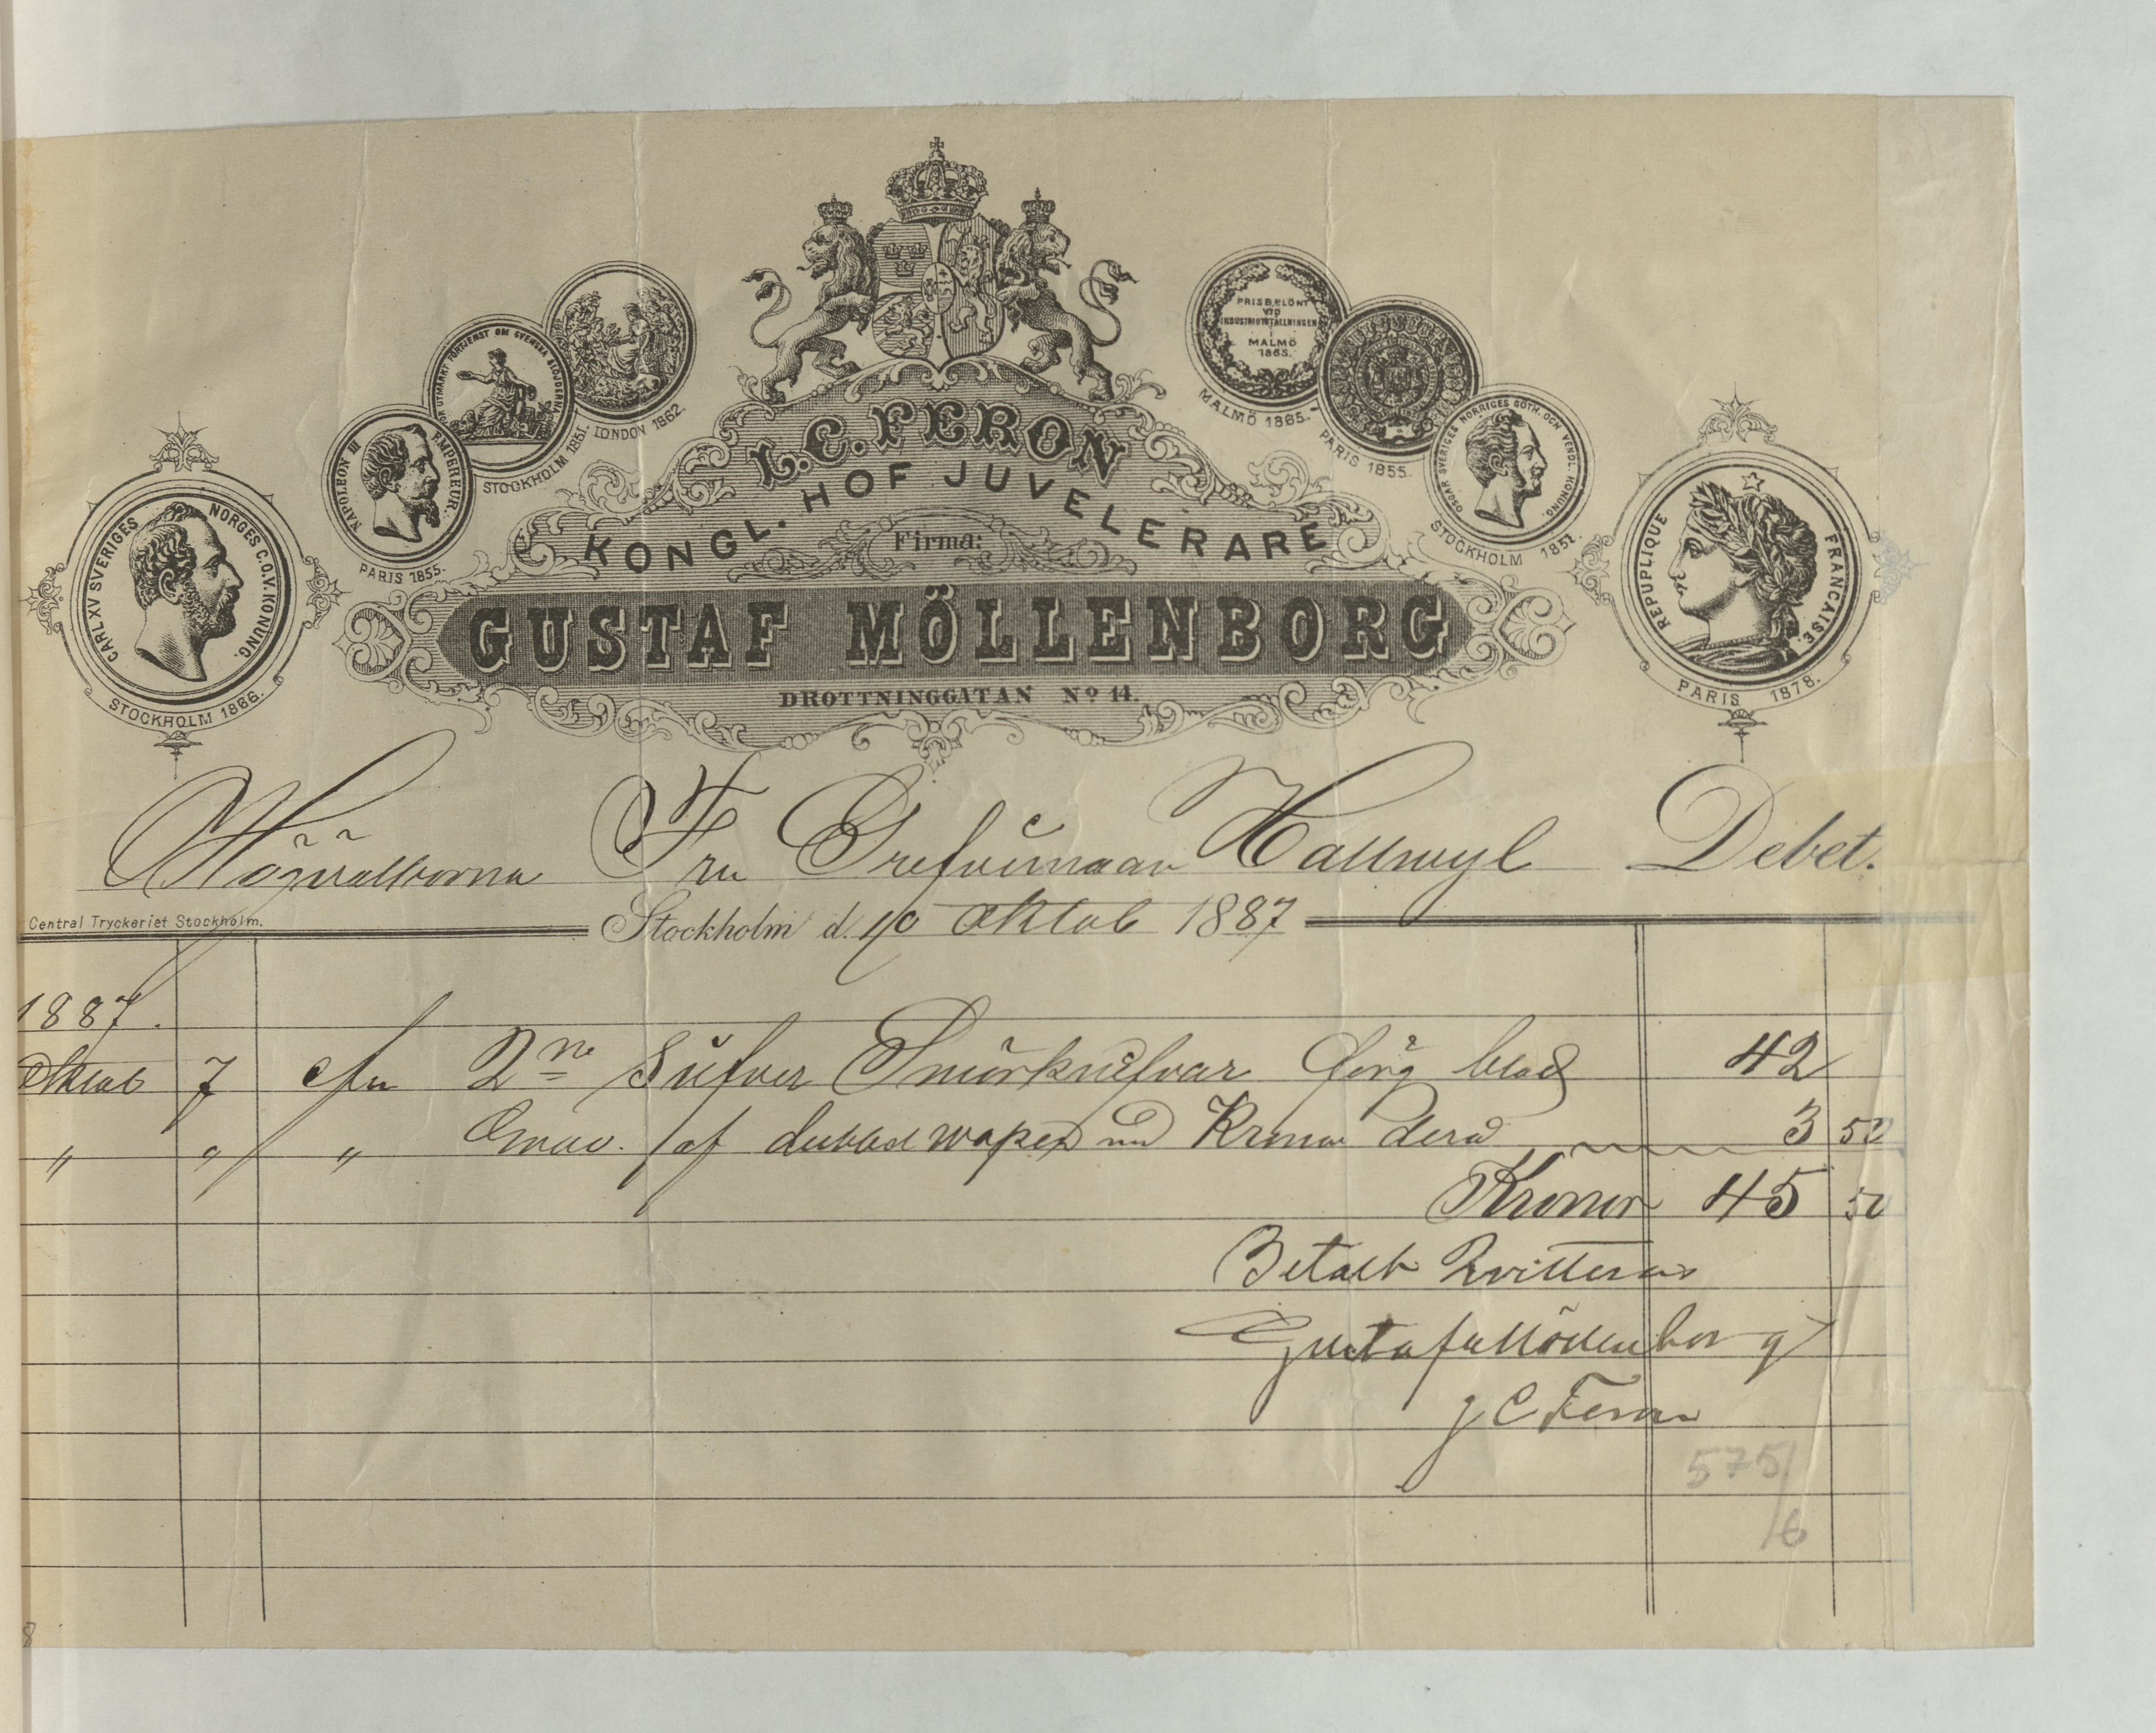 PRISBELÖNT
VID
INDUSTRIUTSTÄLLNINGEN
I
MALMÖ
1865.
FÖR UTMÄRKT FÖRTJENST OM SVENSKA SLÖJDERNA
LONDON 1862.
STOCKHOLM 1851.
NAPOLEON III EMPEREUR.
PARIS 1855.
CARL XV SVERIGES NORGES G.O.V. KONUNG.
STOCKHOLM 1866.
MALMÖ 1865.
PARIS 1855.
OSCAR SVERIGES NORRIGES GÖTH. OCH VENDL. KONUNG.
STOCKHOLM 1851.
REPUPLIQUE FRANCAISE.
PARIS 1878.
L.C. FERON
KONGL. HOF JUVELERARE
Firma:
GUSTAF MÖLLENBORG
DROTTNINGGATAN No 14.
Högvälborna Fru Grefvinnan Hallwyl Debet.
Central Tryckeriet Stockholm.
Stockholm d. 10 Oktob 1887
1887.
Oktob 7 2ne Silfver Smörknifvar förg blad 42
" " " Grav. af dubbel wapen med Krona derå 3 50
Kronor 45 50
Betalt Qvitteras
Gustaf Möllenborg
J C Feron
575/
/6